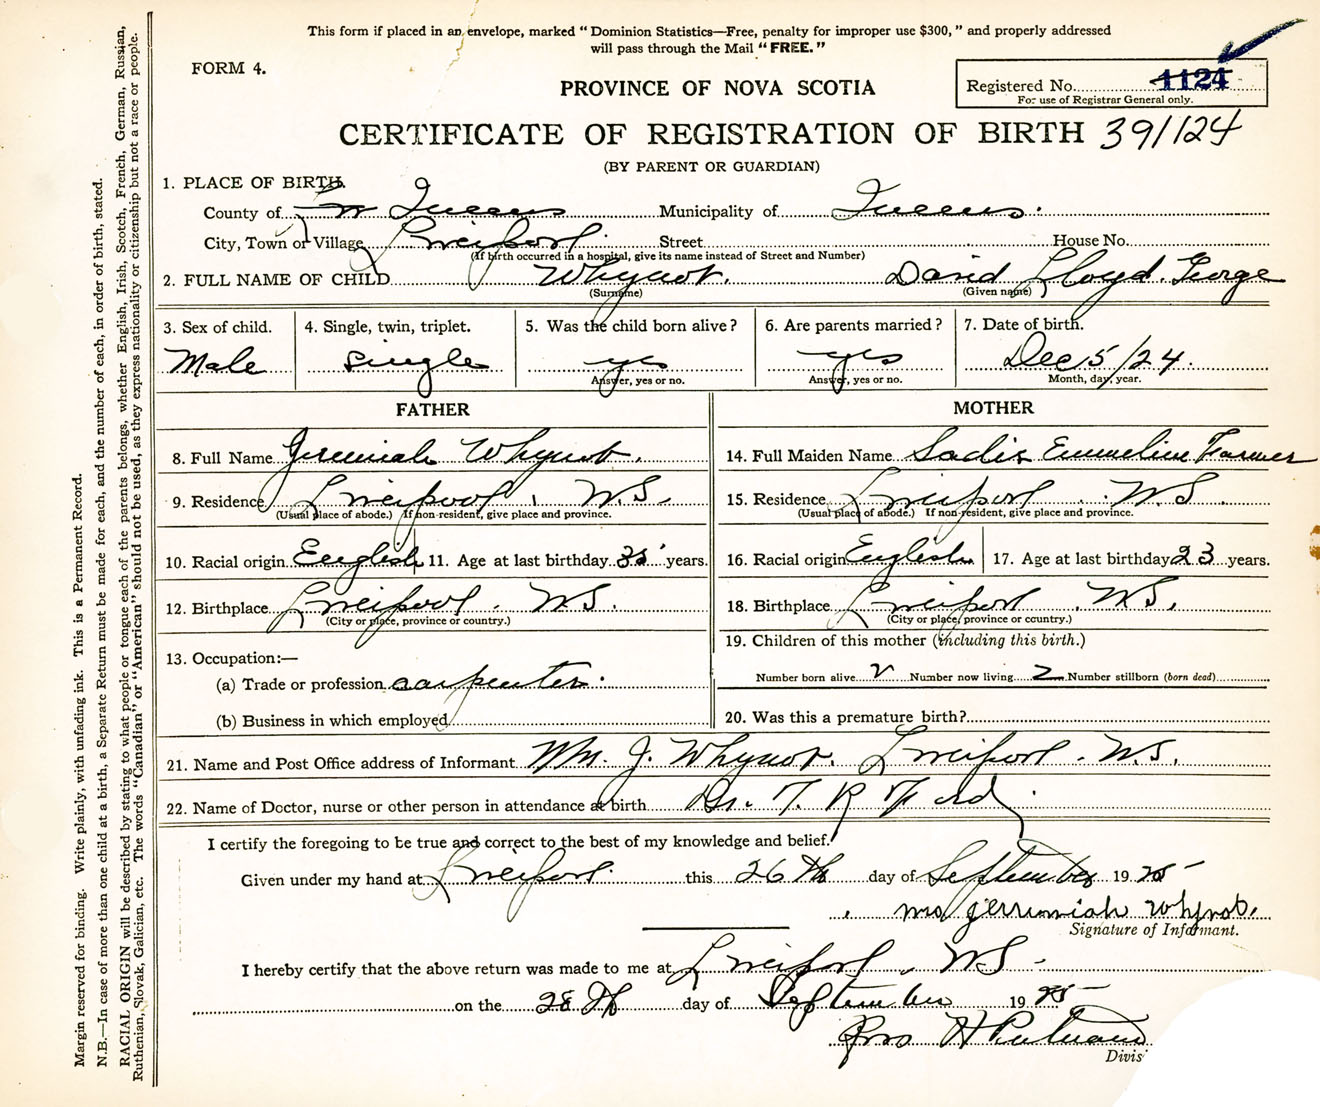 This form if placed in an envelope, marked "Dominion Statistics—Free, penalty for improper use $300," and properly addressed
will pass through the Mail "FREE."
FORM 4.
PROVINCE OF NOVA SCOTIA
Registered No. 1124
For use of Registrar General only.
CERTIFICATE OF REGISTRATION OF BIRTH 39/124
(BY PARENT OR GUARDIAN)
1. PLACE OF BIRTH.
County of Queens Municipality of Queens.
City, Town or Village Liverpool. Street House No.
(If birth occurred in a hospital, give its name instead of Street and Number)
2. FULL NAME OF CHILD Whynot. David Lloyd. George
(Surname) (Given name)
3. Sex of child. 4. Single, twin, triplet. 5. Was the child born alive? 6. Are parents married? 7. Date of birth.
Male single yes yes Dec 5/24.
Answer, yes or no. Answer, yes or no. Month, day, year.
FATHER MOTHER
8. Full Name Jeremiah Whynot. 14. Full Maiden Name Sadie Emmeline Farmer
9. Residence Liverpool, N.S. 15. Residence Liverpool. N.S.
(Usual place of abode.) If non-resident, give place and province. (Usual place of abode.) If non-resident, give place and province.
10. Racial origin English 11. Age at last birthday years. 16. Racial origin English 17. Age at last birthday 23 years.
12. Birthplace Liverpool. N.S. 18. Birthplace Liverpool. N.S.
(City or place, province or country.) (City or place, province or country.)
13. Occupation:— 19. Children of this mother (including this birth.)
(a) Trade or profession carpenter. Number born alive 2 Number now living 2 Number stillborn (born dead)
(b) Business in which employed 20. Was this a premature birth?
21. Name and Post Office address of Informant J. Whynot. Liverpool. N.S.
22. Name of Doctor, nurse or other person in attendance at birth Dr. T. R Ford.
I certify the foregoing to be true and correct to the best of my knowledge and belief.
Given under my hand at Liverpool. this 26th day of September 1925
Mrs Jerrimiah Whynot.
Signature of Informant.
I hereby certify that the above return was made to me at Liverpool, N.S.
on the 28th day of September 1925
Divis
Margin reserved for binding. Write plainly, with unfading ink. This is a Permanent Record.
N.B.—In case of more than one child at a birth, a Separate Return must be made for each, and the number of each, in order of birth, stated.
RACIAL ORIGIN will be described by stating to what people or tongue each of the parents belongs, whether English, Irish, Scotch, French, German, Russian,
Ruthenian, Slovak, Galician, etc. The words "Canadian" or "American" should not be used, as they express nationality or citizenship but not a race or people.